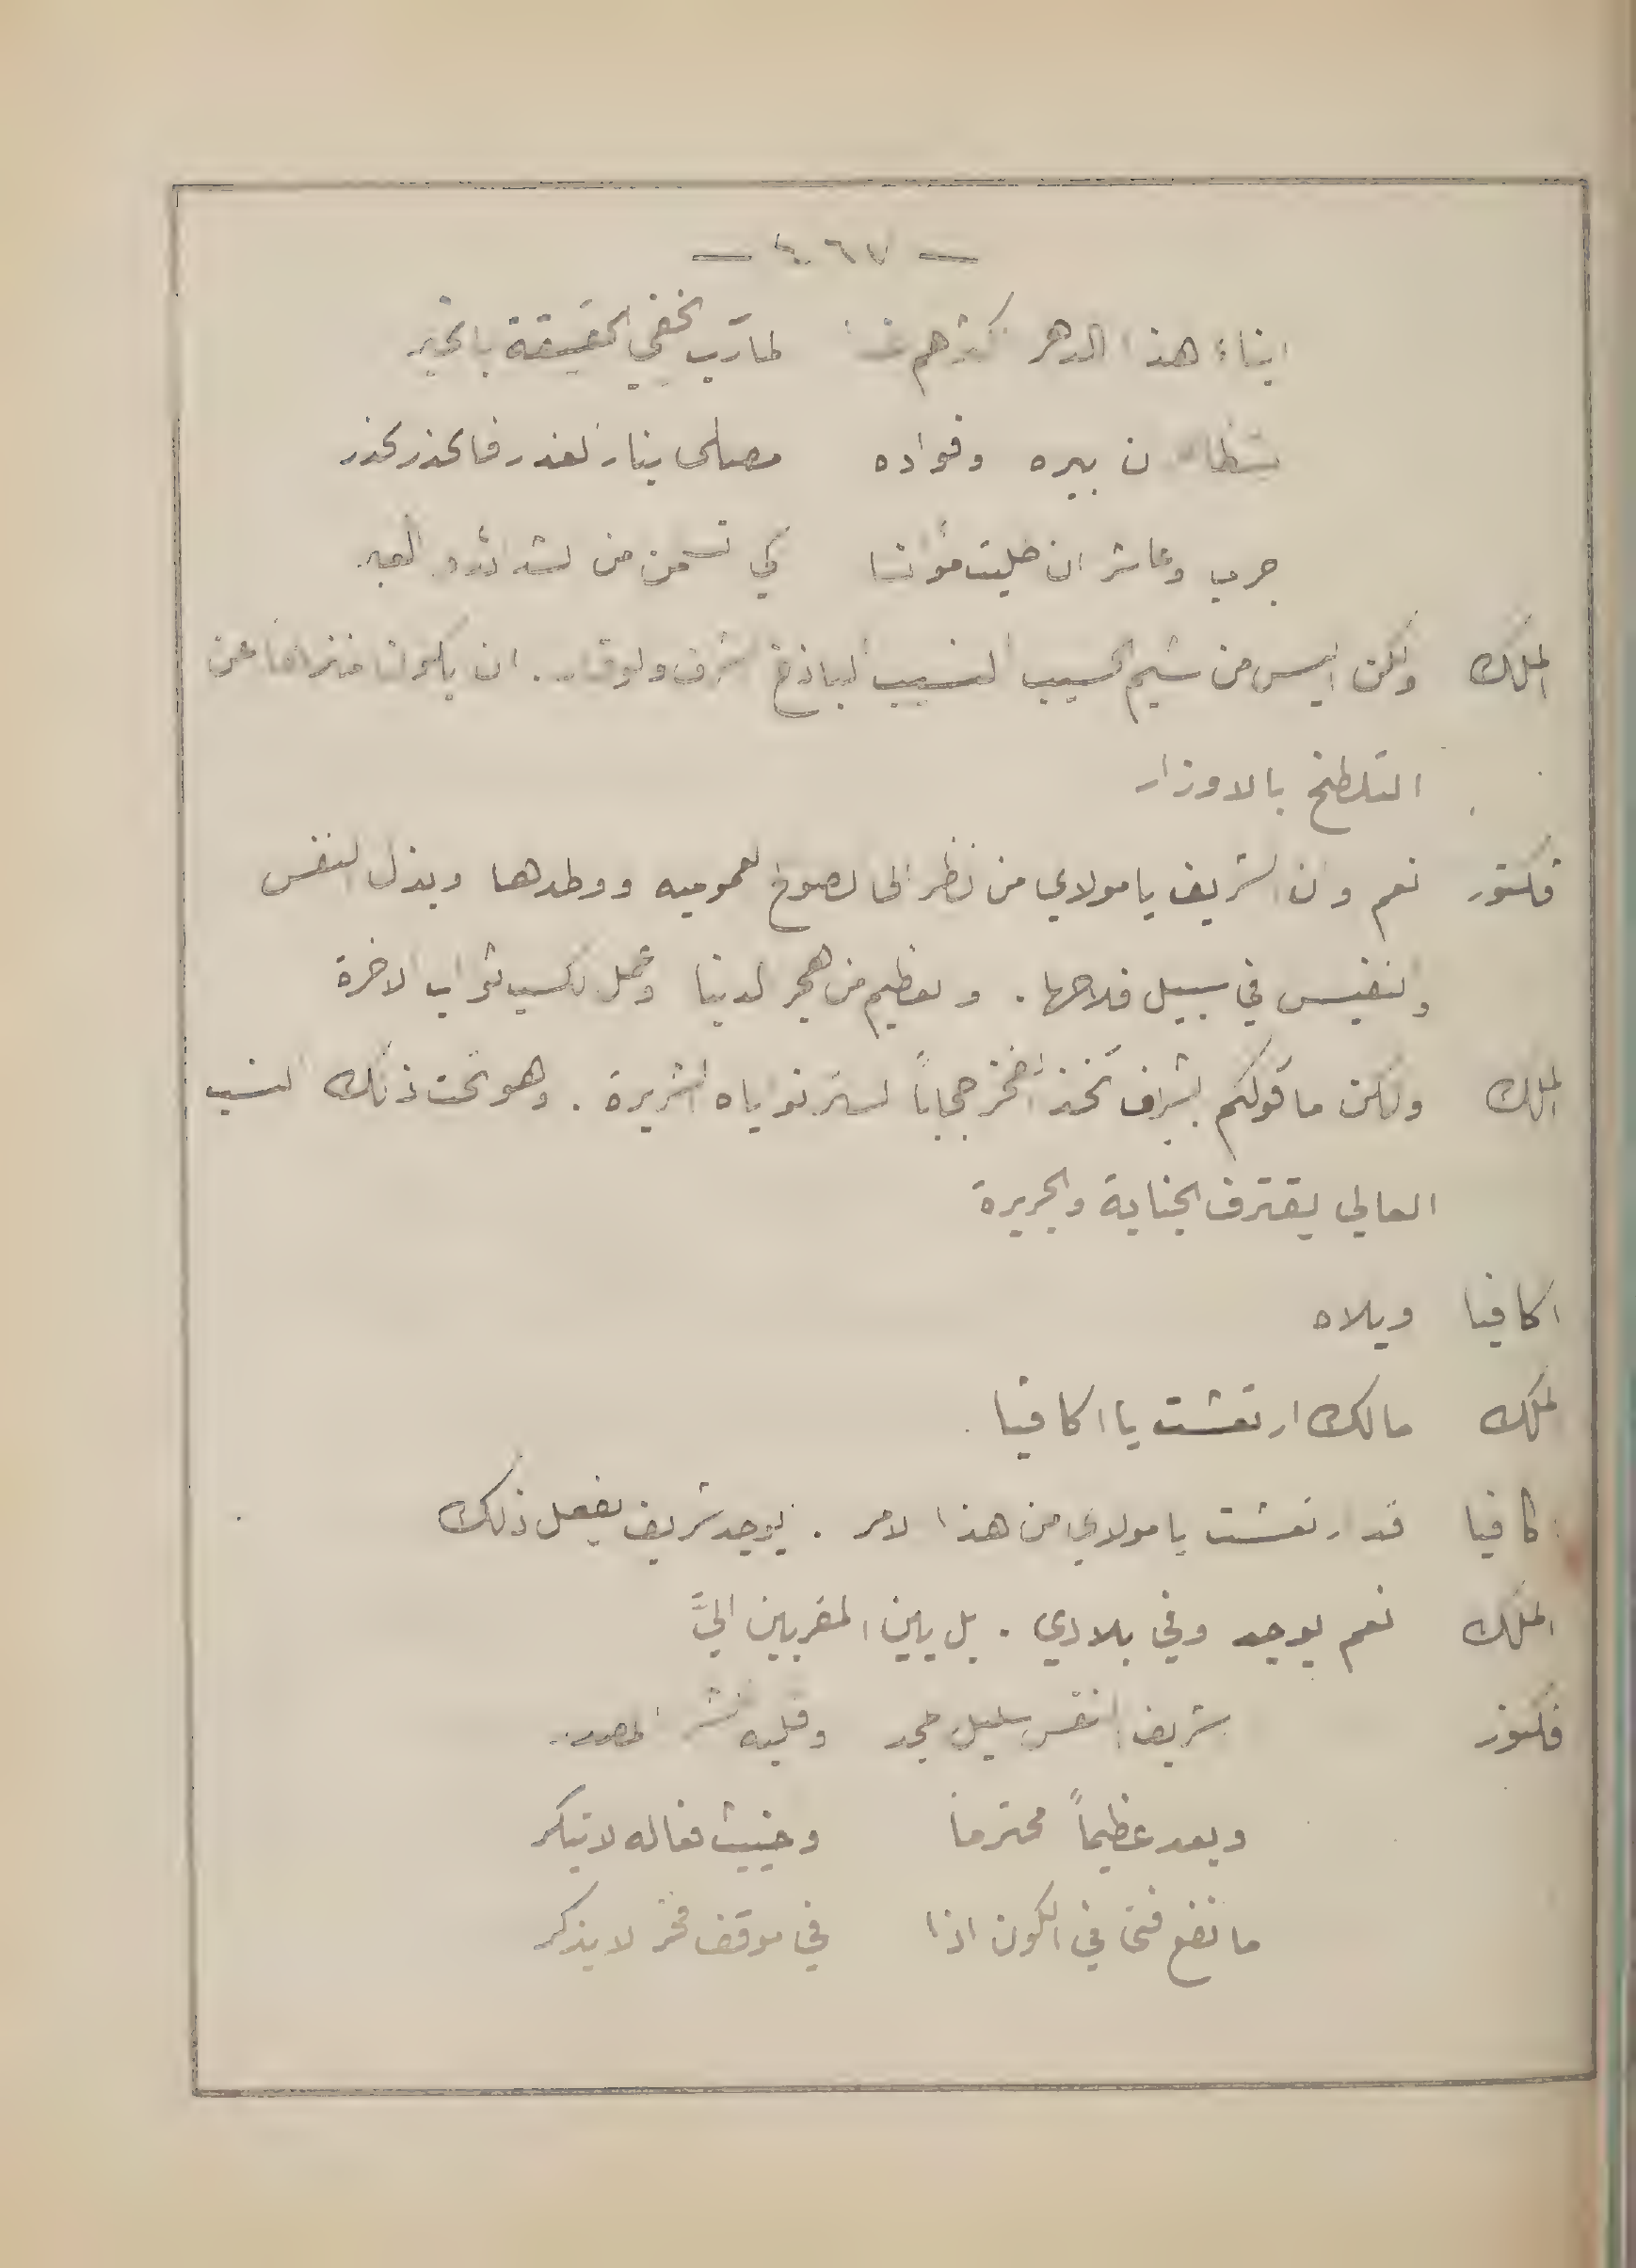 — ٤٦٧ —
ابناء هذا الدهر اكثرهم لمآرب تخفي الحقيقة بالخبر
بيره وفواده مصلى بنار الغدر فالحذر الحذر
جرب وعاشر ان طلبت مؤانسا كي من العبر
الملك ولكن اليس من شيم الحسيب النسيب الباذخ الشرف والوقار . ان يكون منزها عن
التلطخ بالاوزار
فكتور نعم وان الشريف يا مولاي من نظر الى العموميه ووطدها وبذل النفس
والنفيس في سبيل فلاحها . والعظيم من هجر الدنيا وعمل لكسب ثواب الاخرة
الملك ولكن ما قولكم بشريف تخذ الفخر حجاباً لستر نواياه الشريرة . وهو تحت ذلك النسب
العالي يقترف الجناية والجريرة
اكافيا ويلاه
الملك مالك ارتعشت يا اكافيا .
اكافيا قد ارتعشت يا مولاي من هذا الامر . ايوجد شريف يفعل ذلك
الملك نعم يوجد وفي بلادي . بل بين المقربين اليَّ
فكتور شريف النفس سليل مجد وقلبه المصدر
ويعد عظيماً محترما وخبيث فعاله لا تنكر
ما نفع فتى في الكون اذا في موقف فخر لا يذكر